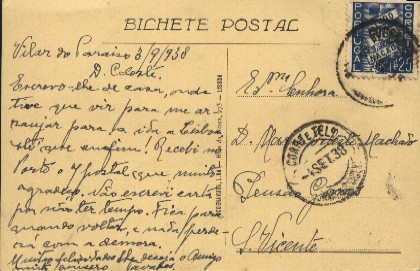 BILHETE POSTAL
Vilar do Paraiso 3/9/938
D. Celeste
Escrevo-lhe de casa, onde
tive que vir para me ar
ranjar para a ida a Lisboa
até que enfim! Recebi no
Porto o postal que muito
agradeço. Não escrevi carta
por não ter tempo. Fica para
quando voltar, e nada perde
rá com a demora.
Muitas felicidades lhe deseja o amigo
muito sincero
PORTUGAL
CORREIO
$25
Exma Senhora
D. Machado
Pensão
S. Vicente
CORREIO E TELEG
SET. 38
LISBOA